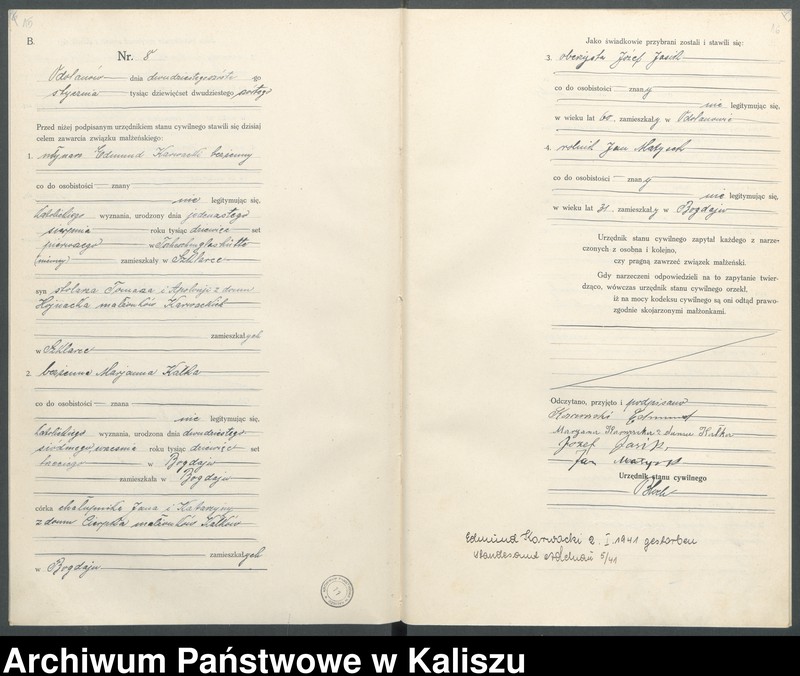 B.
Nr. 8
Odolanów dnia dwudziestego szóstego -go
stycznia tysiąc dziewięćset dwudziestego szóstego
Przed niżej podpisanym urzędnikiem stanu cywilnego stawili się dzisiaj
celem zawarcia związku małżeńskiego:
1. młynarz Edmund Karwacki bezżenny
co do osobistości znany
nie legitymując się,
katolickiego wyznania, urodzony dnia jedenastego
sierpnia roku tysiąc dziewięć set
pierwszego w
(Niemcy) zamieszkały w Szklarce
syn stolarza Tomasza i Apolonji z domu
małżonków Karwackich
zamieszkałych
w Szklarce
2. bezżenna Marjanna Kałka
co do osobistości znana
nie legitymując się,
katolickiego wyznania, urodzona dnia dwudziestego
siódmego września roku tysiąc dziewięć set
trzeciego w Bogdaju
zamieszkała w Bogdaju
córka chałupnika Jana i Katarzyny
z domu Cierpka małżonków Kałków
zamieszkałych
w Bogdaju
Jako świadkowie przybrani zostali i stawili się:
3. oberżysta Józef Jasik
co do osobistości znany
nie legitymując się,
w wieku lat 60, zamieszkały w Odolanowie
4. rolnik Jan Matysek
co do osobistości znany
nie legitymując się,
w wieku lat 31, zamieszkały w Bogdaju
Urzędnik stanu cywilnego zapytał każdego z narze-
czonych z osobna i kolejno,
czy pragną zawrzeć związek małżeński.
Gdy narzeczeni odpowiedzieli na to zapytanie twier-
dząco, wówczas urzędnik stanu cywilnego orzekł,
iż na mocy kodeksu cywilnego są oni odtąd prawo-
zgodnie skojarzonymi małżonkami.
Odczytano, przyjęto i podpisano
Karwacki Edmund
Maryana Karwacka z domu Kałka
Józef Jasik,
Jan Matysek
Urzędnik stanu cywilnego
Edmund Karwacki 2. I. 1941 gestorben
Standesamt Adelnau 5/41
Archiwum Państwowe w Kaliszu